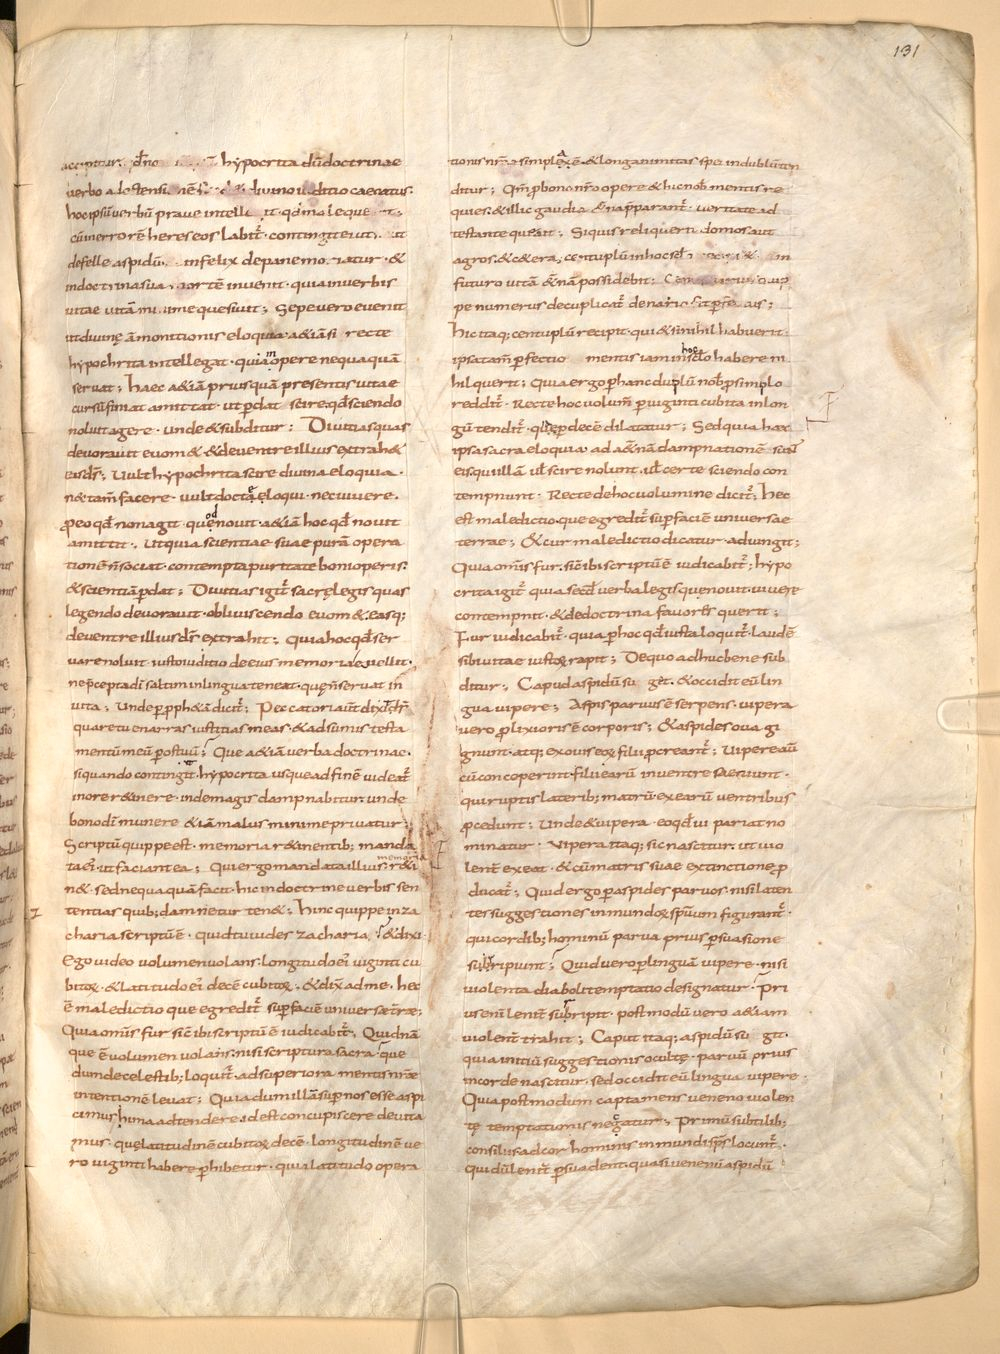 131
hypocrita dũ doctrinae
verbo a diuino iuditio caecatus
hoc ipsũ verbũ prave intelle it · qđ male que
cũ in errorẽ hereseos labit᷑ · contingit ei ut
de felle aspidũ infelix de pane moriatur · &
in doctrina sua mortẽ inuenit · quia in uerbis
uitae uitã minime quesiuit ; Sepe uero euenit
ut diuinę ãmonitionis eloquia · & iã si recte
hypochrita intellegat · quia opere nequaquã
seruat ; haec & iã prius quã presentis uitae
cursũ finiat amittat · ut perdat scire qđ sciendo
noluit agere · unde & subditur ; Diuitias quas
deuorauit euom & & de uentre illius extrah&
eas ds̃ ; Uult hypochrita scire diuina eloquia ·
n& tam̃ facere · uult docte eloqui · nec uiuere ·
Pro eo qđ non agit · quod nouit · & iã hoc qđ nouit
amittit ; Ut quia scientiae suae purã opera
tionẽ ñ sociat · contempta puritate boni operis ·
& scientiã perdat ; Diuitias igit᷑ sacrę legis quas
legendo deuorauit · obliuiscendo euom & · easq;
de uentre illius ds̃ extrahit ; Quia hoc qđ ser
uare noluit · iusto iuditio de eius memoria euellit ·
ne p̃cepta dĩ saltim in lingua teneat · quę ñ seruat in
uita ; Unde per pph&ã dicit᷑ ; Peccatori aut̃ dixit ds̃
quare tu enarras iustitias meas · & adsumis testa
mentũ meũ per os tuũ ; Que & iã uerba doctrinae ·
si quando contingit hypocrita usque ad finẽ uideat᷑
in ore r&inere · inde magis dampnabitur · unde
bono dĩ munere & iã malus minime priuatur ;
Scriptũ quippe est · memoria r&inentib; manda
ta ei᷑ · ut faciant ea ; Qui ergo mandata illius memoria r&i
n& · sed nequaquã facit · hic in doctrine uerbis sen
tentias quib; damnetur ten& ; hinc quippe in za
charia scriptũ ẽ · quid tu uides zacharia · & dixi
Ego uideo uolumen uolans · longitudo ei᷑ uiginti cu
bitorum · & latitudo ei᷑ decẽ cubitorum · & dix̃ ad me · hec
ẽ maledictio que egredit᷑ super faciẽ uniuersę tr̃ae ·
Quia om̃is fur sic̃ ibi scriptũ ẽ iudicabit᷑ ; Quid nã
que ẽ uolumen uolans · nisi scriptura sacra · que
dum de celestib; loquit᷑ · ad superiora mentis nr̃ae
intentionẽ leuat ; Quia dum illã sup nos esse aspi
cimus · hima adtendere · id est concupiscere deuita
mus · quę latitudinẽ cubitorum decẽ · longitudinẽ ue
ro uiginti habere perhibetur · quia latitudo opera
tionis nr̃a simplex ẽ · & longanimitas spei in dublũ
ditur ; Qm̃ pro bono nr̃o opere & hic nob̃ mentis re
quies · & illic gaudia &̃na p̃parant᷑ · ueritate ad
testante que ait ; Si quis reliquerit domos aut
agros · & c&era · centuplũ in hoc scl̃o & in
futuro uitã &̃nã possidebit ;
pe numerus decuplicat᷑ denario
hic itaq; centuplũ recipit · qui & si nihil habuerit ·
ipsa tam̃ perfectio mentis iam in hoc sclo habere ni
hil querit ; Quia ergo per hanc duplũ nob̃ pro simplo
reddit᷑ · Recte hoc uolum̃ per uiginti cubita in lon
gũ tendit᷑ · decẽ dilatatur ; Sed quia haec
ipsa sacra eloquia · ad &̃nã dampnationẽ
eis qui illã ul̃ scire nolunt · ul̃ certe sciendo con
tempnunt · Recte de hoc uolumine dicit᷑ ; hec
est maledictio · que egredit᷑ super faciẽ uniuersae
terrae ; & cur maledictio dicatur · adiungit ;
Quia om̃is fur · sic̃ ibi scriptũ ẽ iudicabit᷑ ; hypo
crita igit᷑ quia secd̃ uerba legis que nouit · uiuere
contempnit · & de doctrina fauores querit ;
Fur iudicabit᷑ · quia per hoc qđ iusta loquit᷑ · laudẽ
sibi uitae iustorum rapit ; De quo adhuc bene sub
ditur ; Caput aspidũ su get · & occidit eũ lin
gua uipere ; Aspis paruus ẽ serpens · uipera
uero prolixioris ẽ corporis ; & aspides oua gi
gnunt · atq; ex ouis eorum filii procreant᷑ ; Uipere aũ
cũ conceperint · filii earũ in uentre saeuiunt ·
qui ruptis laterib; matrũ · ex earũ uentribus
procedunt ; Unde & uipera · eo qđ ui pariat no
minatur · Uipera itaq; sic nascitur · ut uio
lent̃ exeat · & cũ matris suae extinctione pro
ducat᷑ ; Quid ergo per aspides paruos · nisi laten
tes suggestiones inmundorum sp̃uum figurant᷑ ·
qui cordib; hominũ parua prius persuasione
subripiunt ; Quid uero per linguã uipere · nisi
uiolenta diaboli temptatio designatur · Pri
us enĩ lenit᷑ subripit · post modũ uero & iam
uiolent᷑ trahit ; Caput itaq; aspidũ su git ·
quia initiũ suggestionis ocultę · paruũ prius
in corde nascitur · sed occidit eũ lingua uipere ·
Quia post modum capta mens ueneno uiolen
tę temptationis necatur ; Primũ subtilib;
consiliis ad cor hominis inmundi sp̃s locunt᷑ ·
qui dũ lenit᷑ persuadent · quasi uenenũ aspidũ